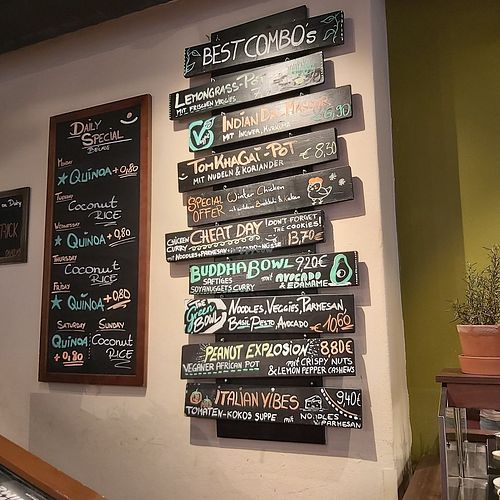 DAILY
SPECIAL
BEILAGE
MONDAY
QUINOA +0,80
TUESDAY
COCONUT
RICE
WEDNESDAY
QUINOA +0,80
THURSDAY
COCONUT
RICE
FRIDAY
QUINOA +0,80
SATURDAY SUNDAY
QUINOA COCONUT
+0,80 RICE
BEST COMBO'S
LEMONGRASS-POT
MIT FRISCHEN VEGGIES
INDIAN DAL MASOOR
€ 6,90
MIT INGWER, KURKUMA
TOM KHA GAI-POT € 8,50
MIT NUDELN & KORIANDER
SPECIAL Winter Chicken
OFFER
CHICKEN CHEAT DAY DON'T FORGET
THE COOKIES!
CURRY 13,70€
MIT NOODLES+PARMESAN+AVOCADO+NÜSSE
BUDDHA BOWL 9,20€
SAFTIGES mit AVOCADO
SOYANUGGETS CURRY & EDAMAME
THE Green BOWL
NOODLES, VEGGIES, PARMESAN,
BASIL PESTO, AVOCADO € 10,60
PEANUT EXPLOSION 8,80€
VEGANER AFRICAN POT MIT CRISPY NUTS
& LEMON PEPPER CASHEWS
ITALIAN VIBES 9,40€
TOMATEN-KOKOS SUPPE mit NOODLES
& PARMESAN